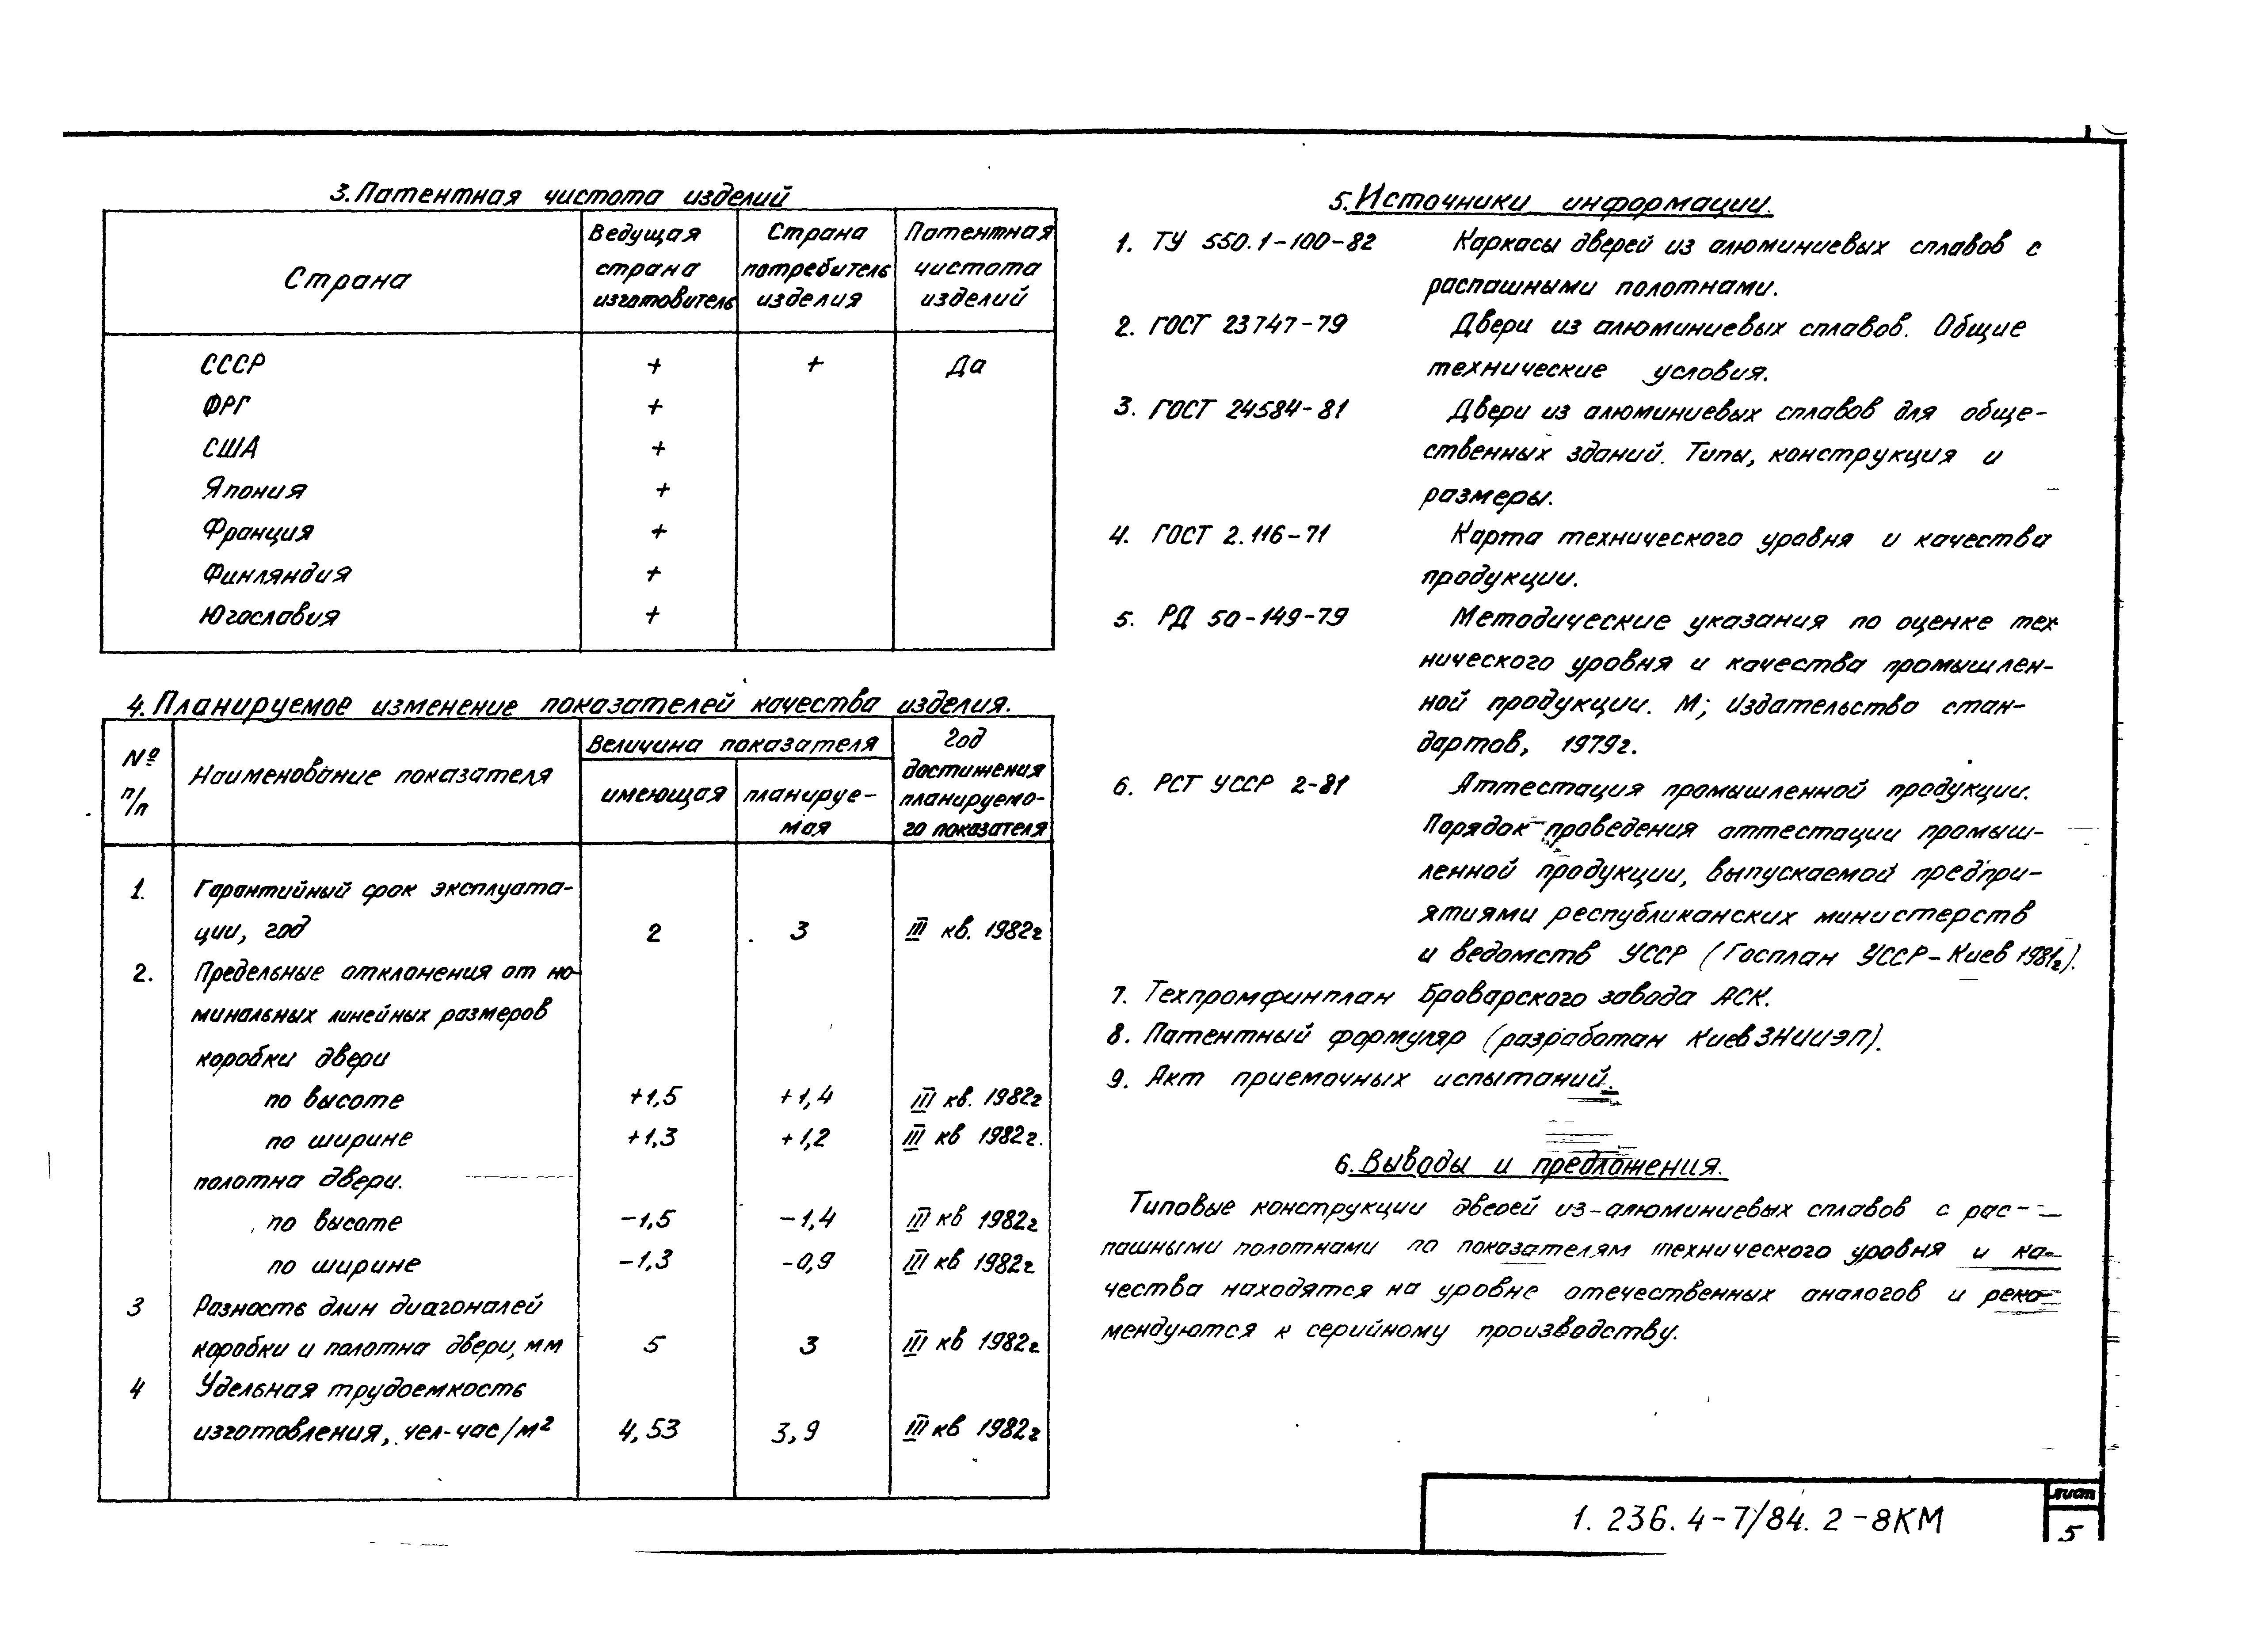 3. Патентная чистота изделий
Страна
Ведущая страна изготовитель
Страна потребитель изделия
Патентная чистота изделий
СССР + + Да
ФРГ +
США +
Япония +
Франция +
Финляндия +
Югославия +
4. Планируемое изменение показателей качества изделия.
№ п/п
Наименование показателя
Величина показателя
имеющая
планируе-
мая
Год
достижения
планируемо-
го показателя
1. Гарантийный срок эксплуата-
ции, год 2 3 III кв. 1982г
2. Предельные отклонения от но-
минальных линейных размеров
коробки двери
по высоте +1,5 +1,4 III кв. 1982г
по ширине +1,3 +1,2 III кв 1982г.
полотна двери.
по высоте -1,5 -1,4 III кв 1982г
по ширине -1,3 -0,9 III кв 1982г
3 Разность длин диагоналей
коробки и полотна двери, мм 5 3 III кв 1982г
4 Удельная трудоемкость
изготовления, чел-час/м² 4,53 3,9 III кв 1982г
5. Источники информации.
1. ТУ 550.1-100-82 Каркасы дверей из алюминиевых сплавов с
распашными полотнами.
2. ГОСТ 23747-79 Двери из алюминиевых сплавов. Общие
технические условия.
3. ГОСТ 24584-81 Двери из алюминиевых сплавов для обще-
ственных зданий. Типы, конструкция и
размеры.
4. ГОСТ 2.116-71 Карта технического уровня и качества
продукции.
5. РД 50-149-79 Методические указания по оценке тех
нического уровня и качества промышлен-
ной продукции. М; Издательство стан-
дартов, 1979г.
6. РСТ УССР 2-81 Аттестация промышленной продукции.
Порядок проведения аттестации промыш-
ленной продукции, выпускаемой предпри-
ятиями республиканских министерств
и ведомств УССР (Госплан УССР-Киев 1981г).
7. Техпромфинплан Броварского завода АСК.
8. Патентный формуляр (разработан КиевЗНИИЭП).
9. Акт приемочных испытаний.
6. Выводы и предложения.
Типовые конструкции дверей из алюминиевых сплавов с рас-
пашными полотнами по показателям технического уровня и ка-
чества находятся на уровне отечественных аналогов и реко-
мендуются к серийному производству.
1.236.4-7/84.2-8КМ
лист
5